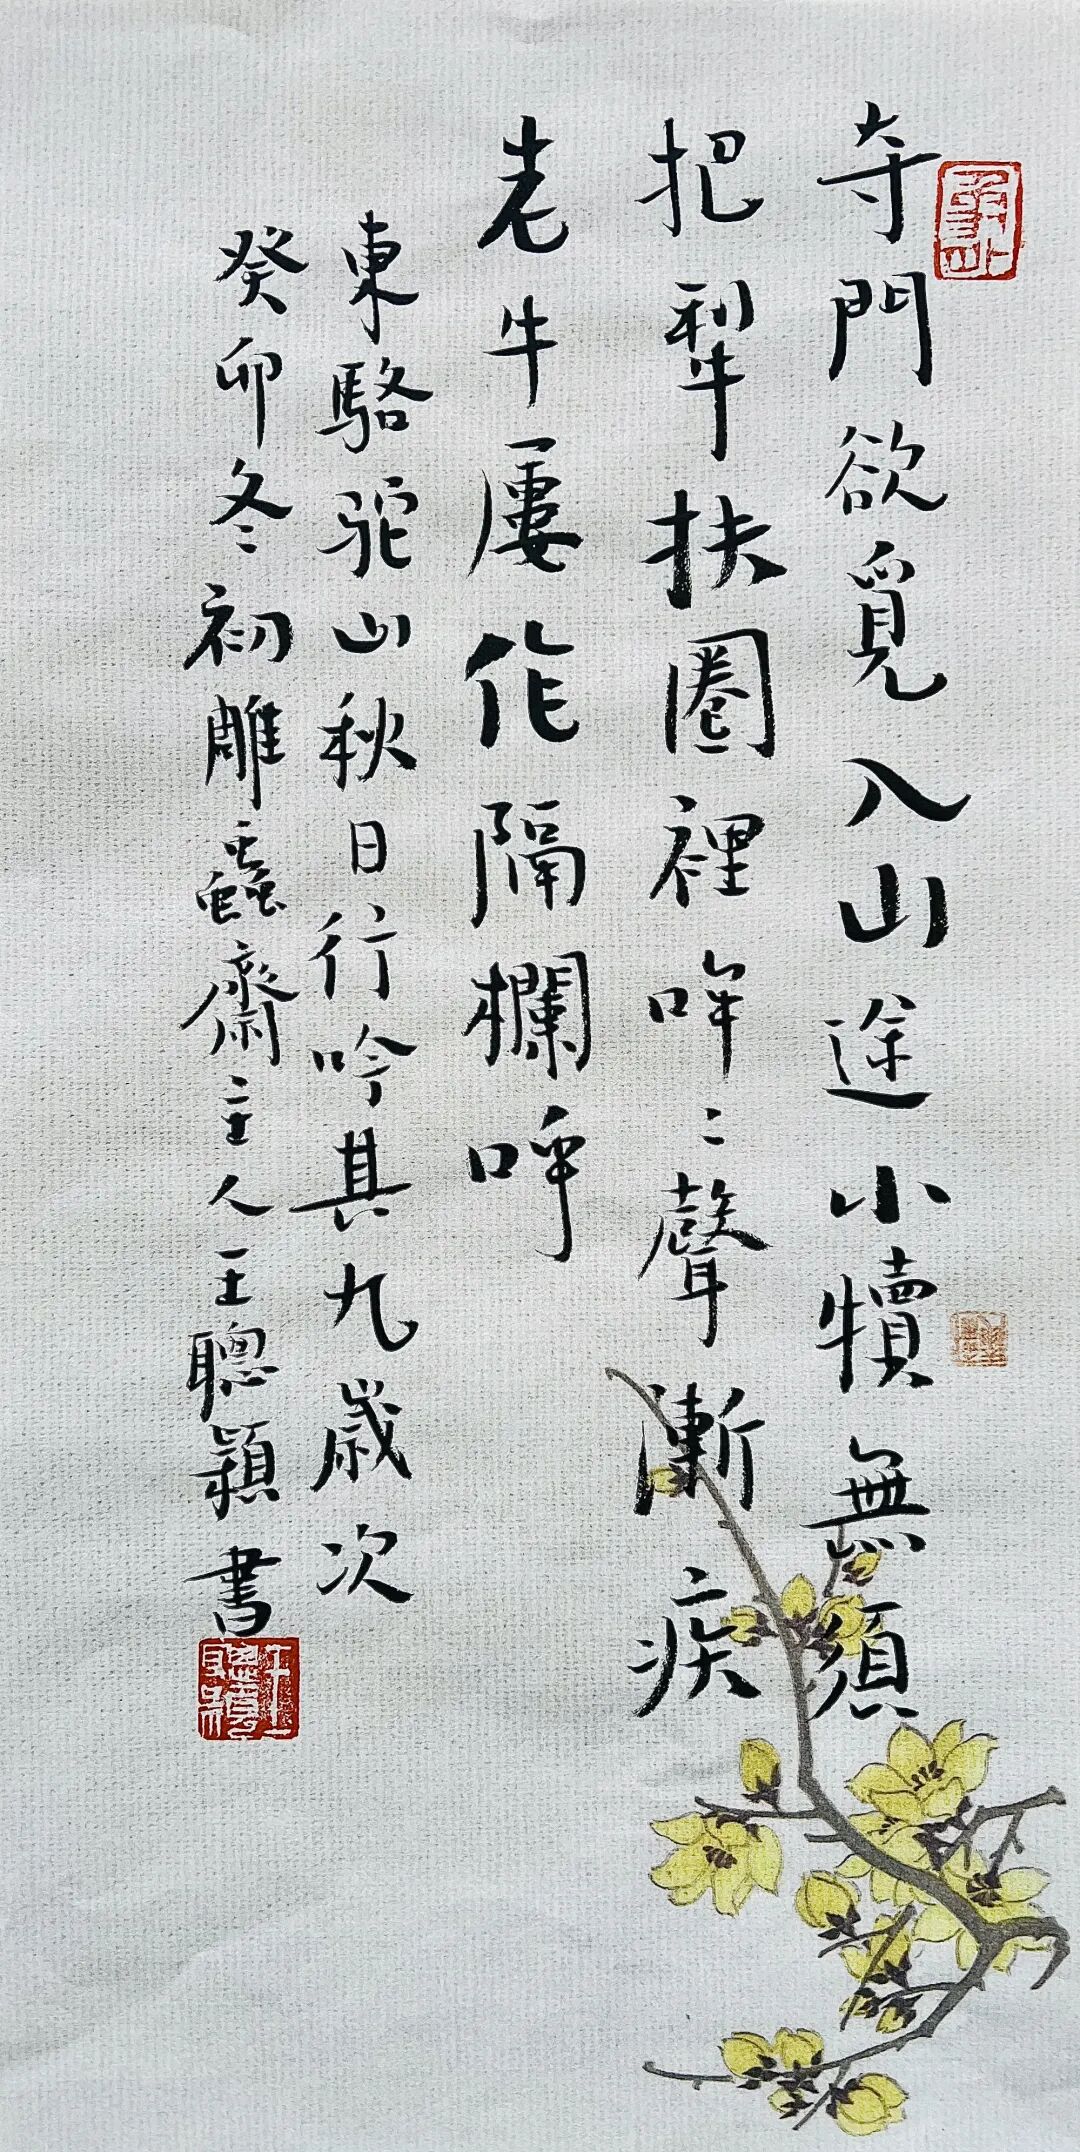 寺門欲覓入山途小犢無須
把犁扶圈裡哞〻聲漸〻疾
老牛屢作隔欄呼
東駱駝山秋日行吟其九歲次
癸卯冬初雕蟲齋主人王聰穎書